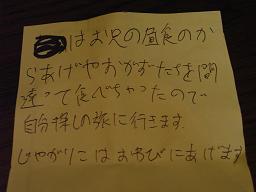 はお兄の昼食のか
らあげやおかずたちを間
違って食べちゃったので
自分探しの旅に行きます.
じゃがりこはおわびにあげます